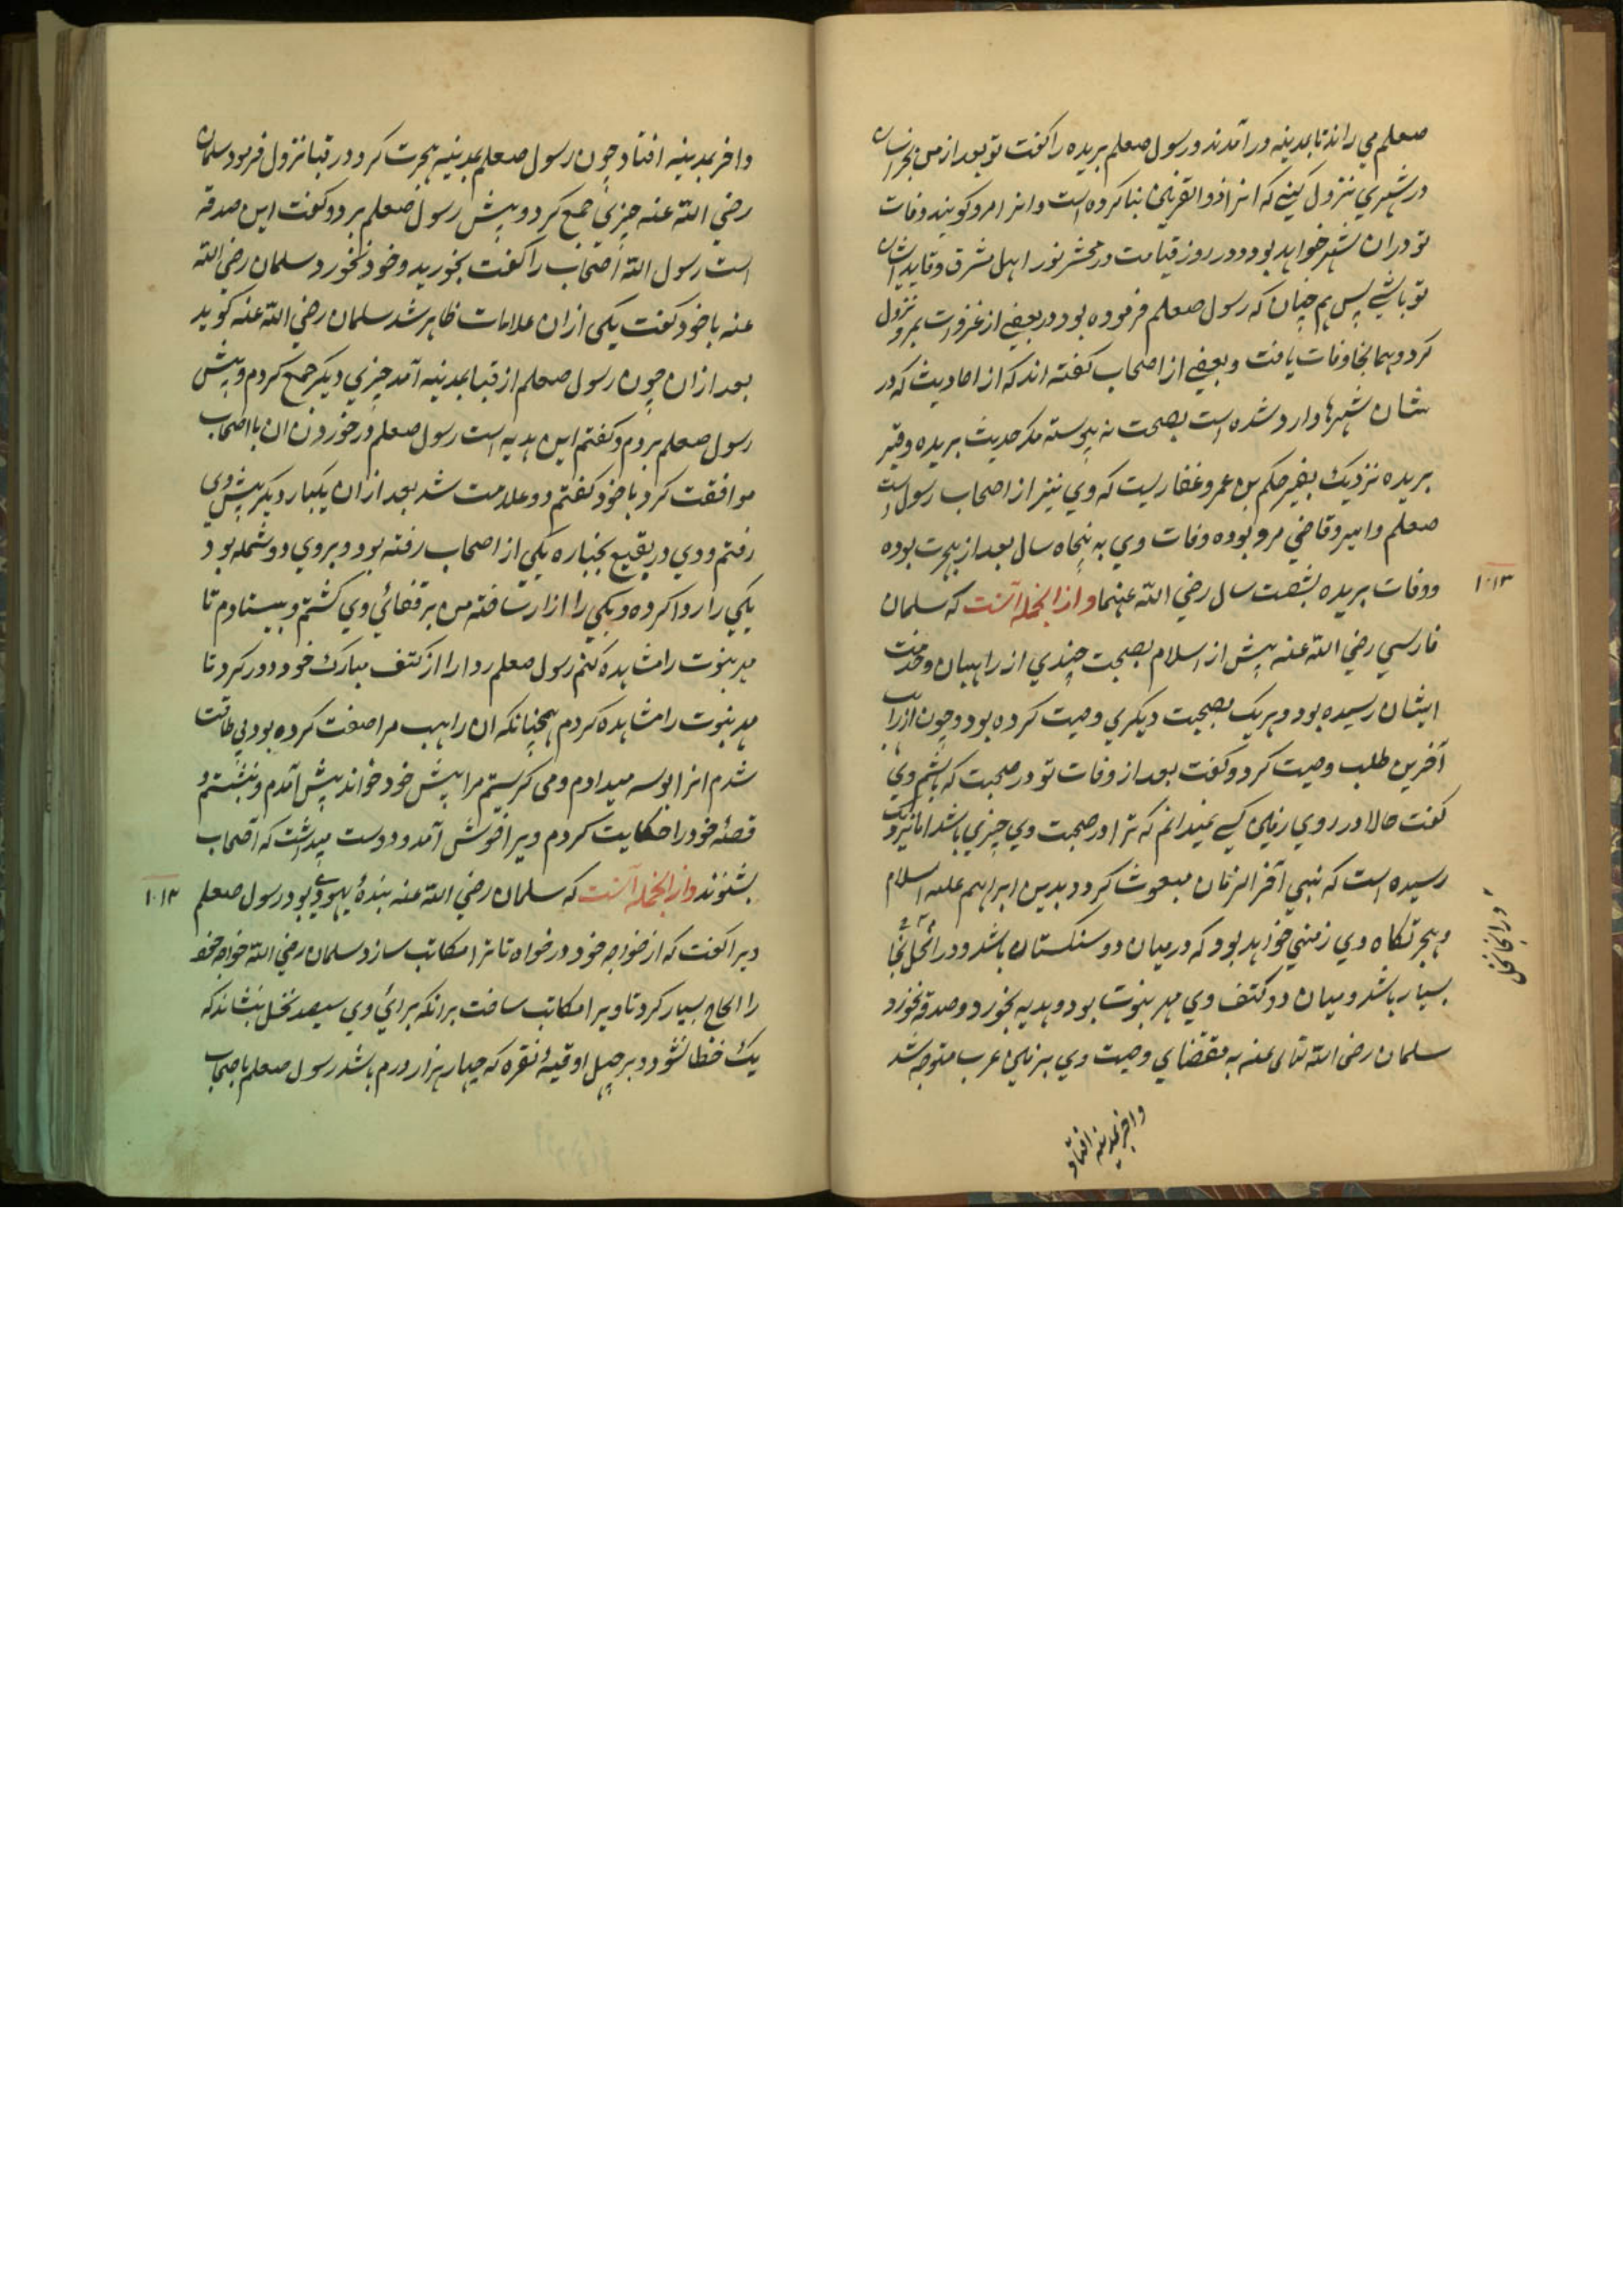 صعلم می راند تا بمدینه در آمدند و رسول صعلم بریده را گفت تو بعد از من بخراسان
در شهری نزول کنی که انرا ذو القرنین بنا کرده است و انرا مرو کویند وفات
تو دران شهر خواهد بود و در روز قیامت در محشر نور اهل مشرق و قاید ایشان
تو باشی پس هم چنان که رسول صعلم فرموده بود در بعضی از غزوات بمرو نزول
کرد و همانجا وفات یافت و بعضی از اصحاب گفته اند که از احادیث که در
شان شهرها وارد شده است بصحت نه پیوسته مکر حدیث بریده و قبر
بریده نزدیک بقبر حکم بن عمرو غفاریست که وی نیز از اصحاب رسول است
صعلم و امیر و قاضی مرو بوده وفات وی به پنجاه سال بعد از هجرت بوده
و وفات بریده بشصت سال رضی الله عنهما و از انجمله آنست که سلمان
۱۰۱۳
فارسی رضی الله عنه پیش از اسلام بصحبت چندی از راهبان و خدمت
ایشان رسیده بود و هر یک بصحبت دیکری وصیت کرده بود و چون از راهب
آخرین طلب وصیت کرد و گفت بعد از وفات تو در صحبت که باشم وی
گفت حالا در روی زمین کسی نمیدانم که ترا در صحبت وی چیزی باشد اما نزدیک
رسیده است که نبی آخر الزمان مبعوث کردد بدین ابراهیم علیه السلام
و هجرتکاه وی زمینی خواهد بود که در میان دو سنکستان باشد و در انجا نخل
بسیار باشد و میان دو کتف وی مهر نبوت بود و هدیه بخورد و صدقه نخورد
سلمان رضی الله تعالی عنه به مقتضای وصیت وی بزمین عرب متوجه شد
و اخر بمدینه افتاد
و در انجا نخل
و اخر بمدینه افتاد چون رسول صعلم بمدینه هجرت کرد و در قبا نزول فرمود سلمان
رضی الله عنه چیزی جمع کرد و پیش رسول صعلم برد و گفت این صدقه
است رسول الله اصحاب را گفت بخورید و خود نخورد سلمان رضی الله
عنه با خود گفت یکی از ان علامات ظاهر شد سلمان رضی الله عنه کوید
بعد از ان چون رسول صعلم از قبا بمدینه آمد چیزی دیکر جمع کردم و پیش
رسول صعلم بردم و گفتم این هدیه است رسول صعلم در خوردن ان با اصحاب
موافقت کرد با خود گفتم دو علامت شد بعد از ان یکبار دیکر پیش وی
رفتم و وی در بقیع بجنازه یکی از اصحاب رفته بود و بروی دو شمله بود
یکی را ردا کرده و یکی را ازار ساخته من بر قفائی وی کشتم و بیستادم تا
مهر نبوت را مشاهده کنم رسول صعلم ردا را از کتف مبارک خود دور کرد تا
مهر نبوت را مشاهده کردم همچنانکه ان راهب مرا صفت کرده بود بی طاقت
شدم انرا بوسه میدادم و می کریستم مرا پیش خود خواند پیش آمدم و نشستم و
قصهٔ خود را حکایت کردم ویرا خوش آمد و دوست میداشت که اصحاب
بشنوند و از انجمله آنست که سلمان رضی الله عنه بندهٔ یهودی بود رسول صعلم
۱۰۱۴
ویرا گفت که از خواجه خود در خواه تا ترا مکاتب سازد سلمان رضی الله خواجه خود
را الحاح بسیار کرد تا ویرا مکاتب ساخت برانکه برای وی سیصد نخل بنشاند که
یک خطا نشود و بر چهل اوقیهٔ نقره که چهار هزار درم باشد رسول صعلم باصحاب